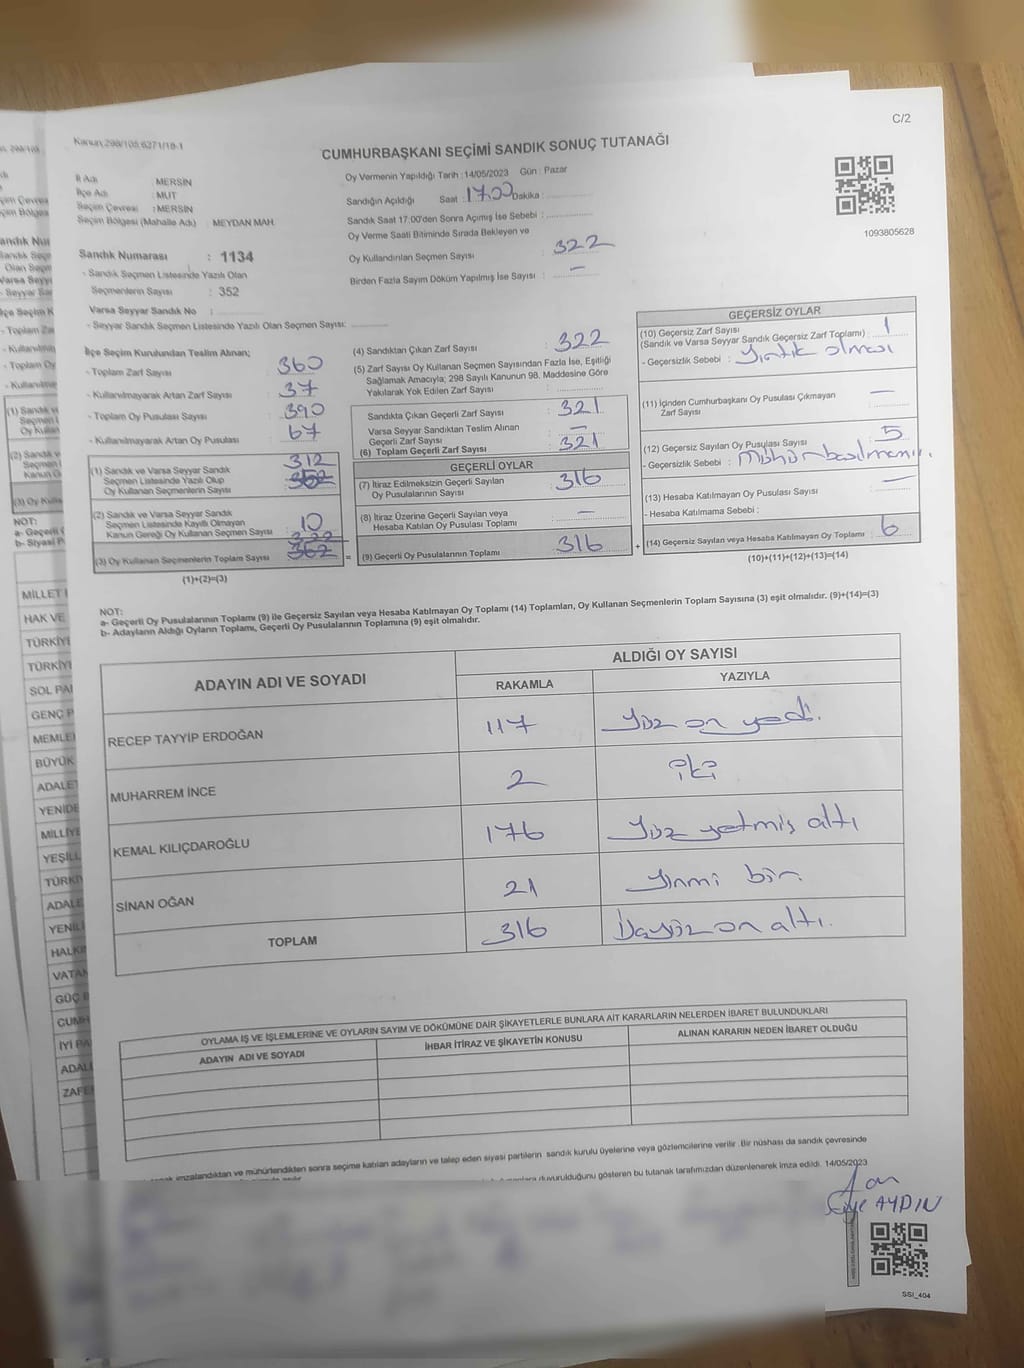 C/2
Kanun:298/105,6271/18-1
CUMHURBAŞKANI SEÇİMİ SANDIK SONUÇ TUTANAĞI
İl Adı : MERSİN
İlçe Adı : MUT
Seçim Çevresi : MERSİN
Seçim Bölgesi (Mahalle Adı) : MEYDAN MAH.
Sandık Numarası : 1134
- Sandık Seçmen Listesinde Yazılı Olan
Seçmenlerin Sayısı : 352
Varsa Seyyar Sandık No :
- Seyyar Sandık Seçmen Listesinde Yazılı Olan Seçmen Sayısı:
Oy Vermenin Yapıldığı Tarih : 14/05/2023 Gün : Pazar
Sandığın Açıldığı Saat : 17.00 Dakika :
Sandık Saat 17.00'den Sonra Açımış İse Sebebi :
Oy Verme Saati Bitiminde Sırada Bekleyen ve
Oy Kullandırılan Seçmen Sayısı : 322
Birden Fazla Sayım Döküm Yapılmış İse Sayısı : —
1093805628
İlçe Seçim Kurulundan Teslim Alınan;
- Toplam Zarf Sayısı : 360
- Kullanılmayarak Artan Zarf Sayısı : 37
- Toplam Oy Pusulası Sayısı : 390
- Kullanılmayarak Artan Oy Pusulası : 67
(1) Sandık ve Varsa Seyyar Sandık
Seçmen Listesinde Yazılı Olup
Oy Kullanan Seçmenlerin Sayısı
312
(2) Sandık ve Varsa Seyyar Sandık
Seçmen Listesinde Kayıtlı Olmayan
Kanun Gereği Oy Kullanan Seçmen Sayısı : 10
322
(3) Oy Kullanan Seçmenlerin Toplam Sayısı 362
(1)+(2)=(3)
(4) Sandıktan Çıkan Zarf Sayısı : 322
(5) Zarf Sayısı Oy Kullanan Seçmen Sayısından Fazla İse, Eşitliği
Sağlamak Amacıyla; 298 Sayılı Kanunun 98. Maddesine Göre
Yakılarak Yok Edilen Zarf Sayısı :
Sandıkta Çıkan Geçerli Zarf Sayısı : 321
Varsa Seyyar Sandıktan Teslim Alınan
Geçerli Zarf Sayısı : —
(6) Toplam Geçerli Zarf Sayısı : 321
GEÇERLİ OYLAR
(7) İtiraz Edilmeksizin Geçerli Sayılan
Oy Pusulalarının Sayısı : 316
(8) İtiraz Üzerine Geçerli Sayılan veya
Hesaba Katılan Oy Pusulası Toplamı : —
= (9) Geçerli Oy Pusulalarının Toplamı : 316
GEÇERSİZ OYLAR
(10) Geçersiz Zarf Sayısı
(Sandık ve Varsa Seyyar Sandık Geçersiz Zarf Toplamı) : 1
- Geçersizlik Sebebi : Yırtık olması
(11) İçinden Cumhurbaşkanı Oy Pusulası Çıkmayan
Zarf Sayısı : —
(12) Geçersiz Sayılan Oy Pusulası Sayısı : 5
- Geçersizlik Sebebi :
(13) Hesaba Katılmayan Oy Pusulası Sayısı : —
- Hesaba Katılmama Sebebi :
+ (14) Geçersiz Sayılan veya Hesaba Katılmayan Oy Toplamı : 6
(10)+(11)+(12)+(13)=(14)
NOT:
a- Geçerli Oy Pusulalarının Toplamı (9) ile Geçersiz Sayılan veya Hesaba Katılmayan Oy Toplamı (14) Toplamları, Oy Kullanan Seçmenlerin Toplam Sayısına (3) eşit olmalıdır. (9)+(14)=(3)
b- Adayların Aldığı Oyların Toplamı, Geçerli Oy Pusulalarının Toplamına (9) eşit olmalıdır.
ADAYIN ADI VE SOYADI
ALDIĞI OY SAYISI
RAKAMLA YAZIYLA
RECEP TAYYİP ERDOĞAN 117 Yüz on yedi.
MUHARREM İNCE 2 iki
KEMAL KILIÇDAROĞLU 176 Yüz yetmiş altı
SİNAN OĞAN 21 Yirmi bir.
TOPLAM 316 Üçyüz on altı.
OYLAMA İŞ VE İŞLEMLERİNE VE OYLARIN SAYIM VE DÖKÜMÜNE DAİR ŞİKAYETLERLE BUNLARA AİT KARARLARIN NELERDEN İBARET BULUNDUKLARI
ADAYIN ADI VE SOYADI İHBAR İTİRAZ VE ŞİKAYETİN KONUSU ALINAN KARARIN NEDEN İBARET OLDUĞU
imzalandıktan ve mühürlendikten sonra seçime katılan adayların ve talep eden siyasi partilerin sandık kurulu üyelerine veya gözlemcilerine verilir. Bir nüshası da sandık çevresinde
duyurulduğunu gösteren bu tutanak tarafımızdan düzenlenerek imza edildi. 14/05/2023
AYDIN
SSI_404